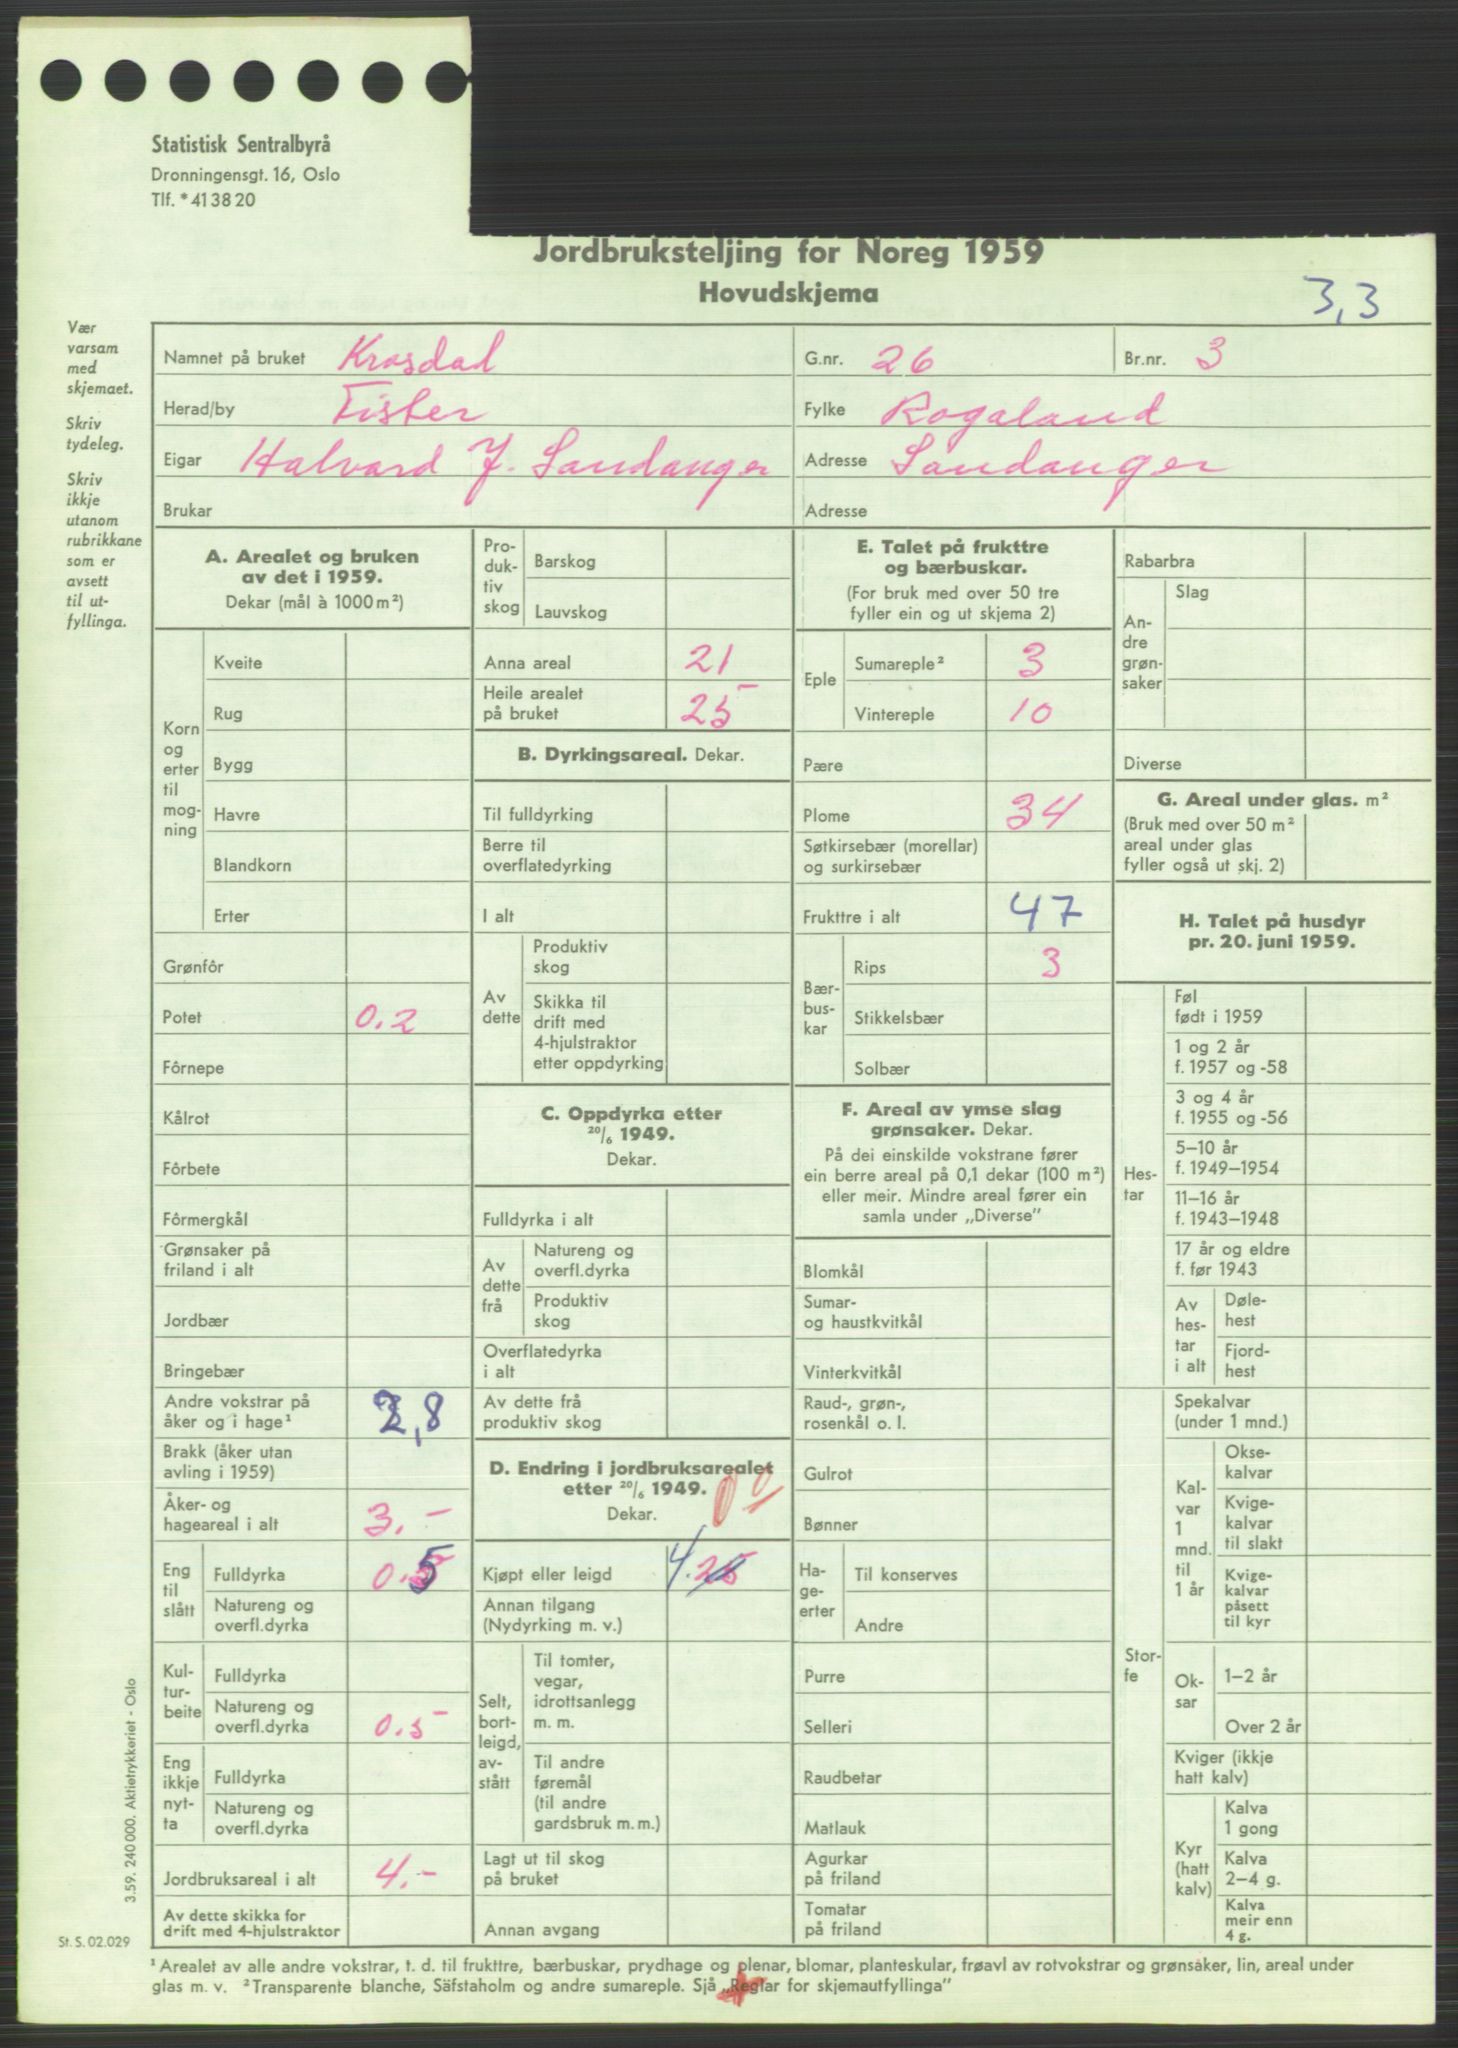 Statistisk Sentralbyrå
Dronningensgt. 16, Oslo
Tlf. *41 38 20
Jordbruksteljing for Noreg 1959
Hovudskjema
3,3
Vær
varsam
med
skjemaet.
Skriv
tydeleg.
Skriv
ikkje
utanom
rubrikkane
som er
avsett
til ut-
fyllinga.
Namnet på bruket Krosdad G.nr. 26 Br.nr. 3
Herad/by Fister Fylke Rogaland
Eigar Halvard J. Sandanger Adresse Sandanger
Brukar Adresse
A. Arealet og bruken
av det i 1959.
Dekar (mål à 1000 m²)
Korn
og
erter
til
mog-
ning
Kveite
Rug
Bygg
Havre
Blandkorn
Erter
Grønfôr
Potet 0.2
Fôrnepe
Kålrot
Fôrbete
Fôrmergkål
Grønsaker på
friland i alt
Jordbær
Bringebær
Andre vokstrar på
åker og i hage¹ 2,8
Brakk (åker utan
avling i 1959)
Åker- og
hageareal i alt 3.-
Eng
til
slått
Fulldyrka 0.5
Natureng og
overfl.dyrka
Kul-
tur-
beite
Fulldyrka
Natureng og
overfl.dyrka 0.5
Eng
ikkje
nyt-
ta
Fulldyrka
Natureng og
overfl.dyrka
Jordbruksareal i alt 4.-
Av dette skikka for
drift med 4-hjulstraktor
Pro-
duk-
tiv
skog
Barskog
Lauvskog
Anna areal 21
Heile arealet
på bruket 25
B. Dyrkingsareal. Dekar.
Til fulldyrking
Berre til
overflatedyrking
I alt
Av
dette
Produktiv
skog
Skikka til
drift med
4-hjulstraktor
etter oppdyrking
C. Oppdyrka etter
20/6 1949.
Dekar.
Fulldyrka i alt
Av
dette
frå
Natureng og
overfl.dyrka
Produktiv
skog
Overflatedyrka
i alt
Av dette frå
produktiv skog
D. Endring i jordbruksarealet
etter 20/6 1949.
Dekar.
Kjøpt eller leigd 4.25
Annan tilgang
(Nydyrking m. v.)
Selt,
bort-
leigd,
av-
stått
Til tomter,
vegar,
idrottsanlegg
m. m.
Til andre
føremål
(til andre
gardsbruk m. m.)
Lagt ut til skog
på bruket
Annan avgang
E. Talet på frukttre
og bærbuskar.
(For bruk med over 50 tre
fyller ein og ut skjema 2)
Eple
Sumareple² 3
Vintereple 10
Pære
Plome 34
Søtkirsebær (morellar)
og surkirsebær
Frukttre i alt 47
Bær-
bus-
kar
Rips 3
Stikkelsbær
Solbær
F. Areal av ymse slag
grønsaker. Dekar.
På dei einskilde vokstrane fører
ein berre areal på 0,1 dekar (100 m²)
eller meir. Mindre areal fører ein
samla under „Diverse”
Blomkål
Sumar-
og haustkvitkål
Vinterkvitkål
Raud-, grøn-,
rosenkål o. l.
Gulrot
Bønner
Ha-
ge-
erter
Til konserves
Andre
Purre
Selleri
Raudbetar
Matlauk
Agurkar
på friland
Tomatar
på friland
Rabarbra
An-
dre
grøn-
saker
Slag
Diverse
G. Areal under glas. m²
(Bruk med over 50 m²
areal under glas
fyller også ut skj. 2)
H. Talet på husdyr
pr. 20. juni 1959.
Hes-
tar
Føl
født i 1959
1 og 2 år
f. 1957 og -58
3 og 4 år
f. 1955 og -56
5–10 år
f. 1949–1954
11–16 år
f. 1943–1948
17 år og eldre
f. før 1943
Av
hes-
tar
i alt
Døle-
hest
Fjord-
hest
Stor-
fe
Spekalvar
(under 1 mnd.)
Kal-
var
1
mnd.
til
1 år
Okse-
kalvar
Kvige-
kalvar
til slakt
Kvige-
kalvar
påsett
til kyr
Ok-
sar
1–2 år
Over 2 år
Kviger (ikkje
hatt kalv)
Kyr
(hatt
kalv)
Kalva
1 gong
Kalva
2–4 g.
Kalva
meir enn
4 g.
3.59. 240 000. Aktietrykkeriet - Oslo
St. S. 02.029
¹ Arealet av alle andre vokstrar, t. d. til frukttre, bærbuskar, prydhage og plenar, blomar, planteskular, frøavl av rotvokstrar og grønsaker, lin, areal under
glas m. v. ² Transparente blanche, Säfstaholm og andre sumareple. Sjå „Reglar for skjemautfyllinga”